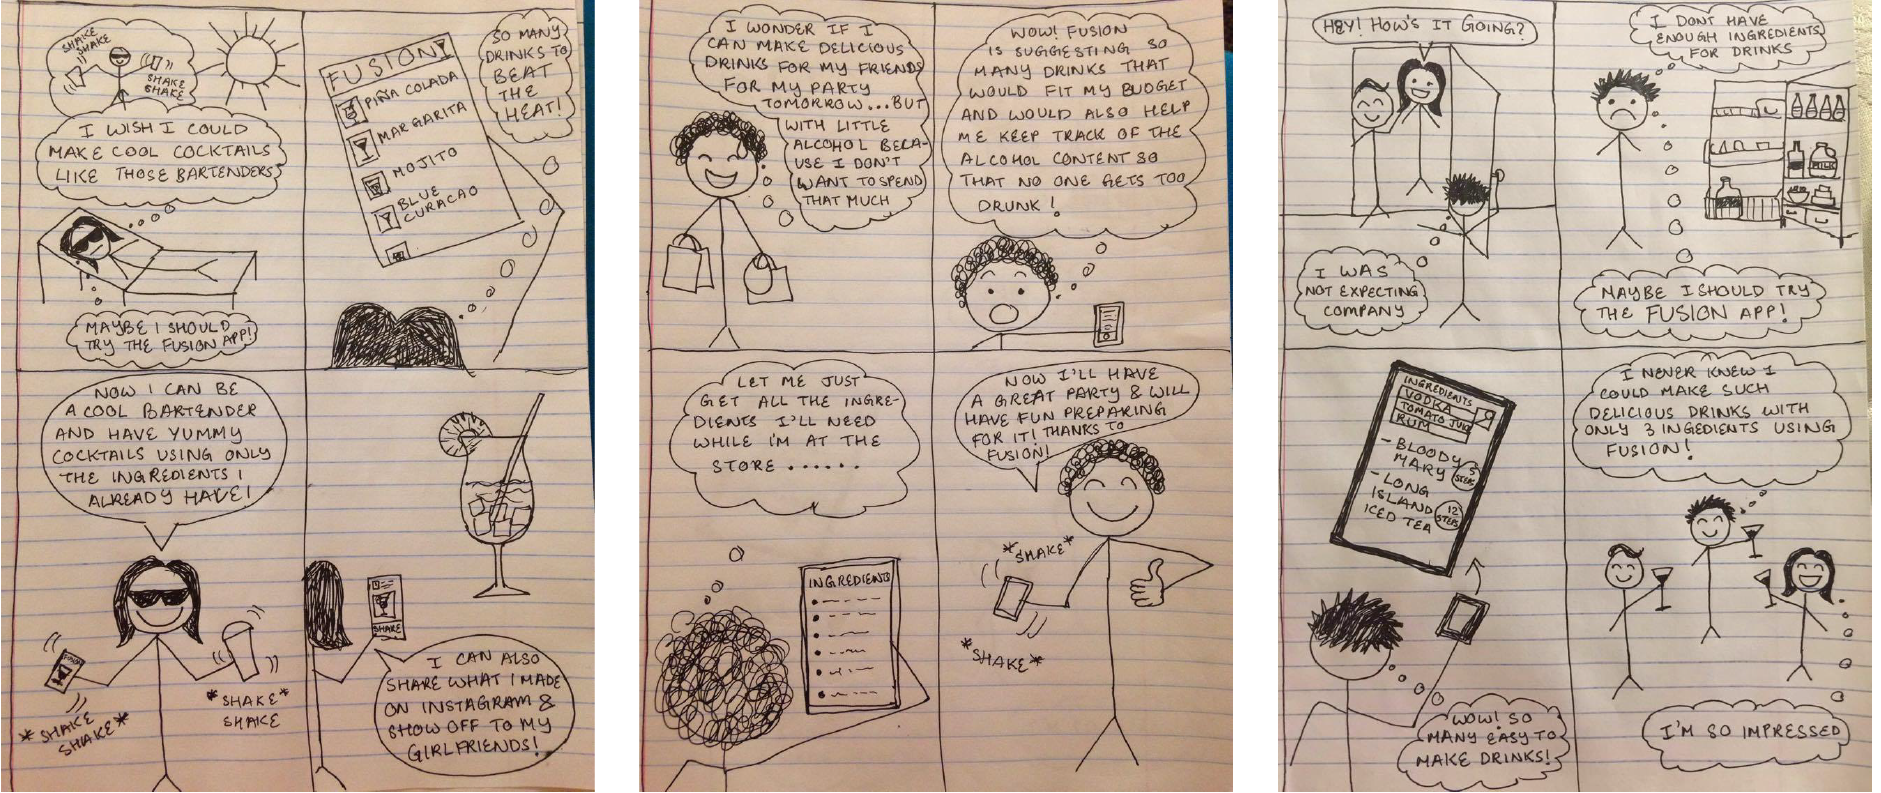 SHAKE
SHAKE
SHAKE
SHAKE
I WISH I COULD
MAKE COOL COCKTAILS
LIKE THOSE BARTENDERS
MAYBE I SHOULD
TRY THE FUSION APP!
FUSION
PIÑA COLADA
MARGARITA
MOJITO
BLUE
CURACAO
SO MANY
DRINKS TO
BEAT
THE
HEAT!
NOW I CAN BE
A COOL BARTENDER
AND HAVE YUMMY
COCKTAILS USING ONLY
THE INGREDIENTS I
ALREADY HAVE!
*SHAKE
SHAKE*
*SHAKE*
SHAKE
SHARE
I CAN ALSO
SHARE WHAT I MADE
ON INSTAGRAM &
SHOW OFF TO MY
GIRLFRIENDS!
I WONDER IF I
CAN MAKE DELICIOUS
DRINKS FOR MY FRIENDS
FOR MY PARTY
TOMORROW...BUT
WITH LITTLE
ALCOHOL BECA-
USE I DON'T
WANT TO SPEND
THAT MUCH
WOW! FUSION
IS SUGGESTING SO
MANY DRINKS THAT
WOULD FIT MY BUDGET
AND WOULD ALSO HELP
ME KEEP TRACK OF THE
ALCOHOL CONTENT SO
THAT NO ONE GETS TOO
DRUNK!
LET ME JUST
GET ALL THE INGRE-
DIENTS I'LL NEED
WHILE I'M AT THE
STORE ......
INGREDIENTS
NOW I'LL HAVE
A GREAT PARTY & WILL
HAVE FUN PREPARING
FOR IT! THANKS TO
FUSION!
*SHAKE*
*SHAKE*
HEY! HOW'S IT GOING?
I WAS
NOT EXPECTING
COMPANY
I DONT HAVE
ENOUGH INGREDIENTS
FOR DRINKS
MILK
MAYBE I SHOULD TRY
THE FUSION APP!
INGREDIENTS
VODKA
TOMATO JUIC
RUM
- BLOODY
MARY
5
STEPS
- LONG
ISLAND
ICED TEA
12
STEPS
WOW! SO
MANY EASY TO
MAKE DRINKS!
I NEVER KNEW I
COULD MAKE SUCH
DELICIOUS DRINKS WITH
ONLY 3 INGEDIENTS USING
FUSION!
I'M SO IMPRESSED